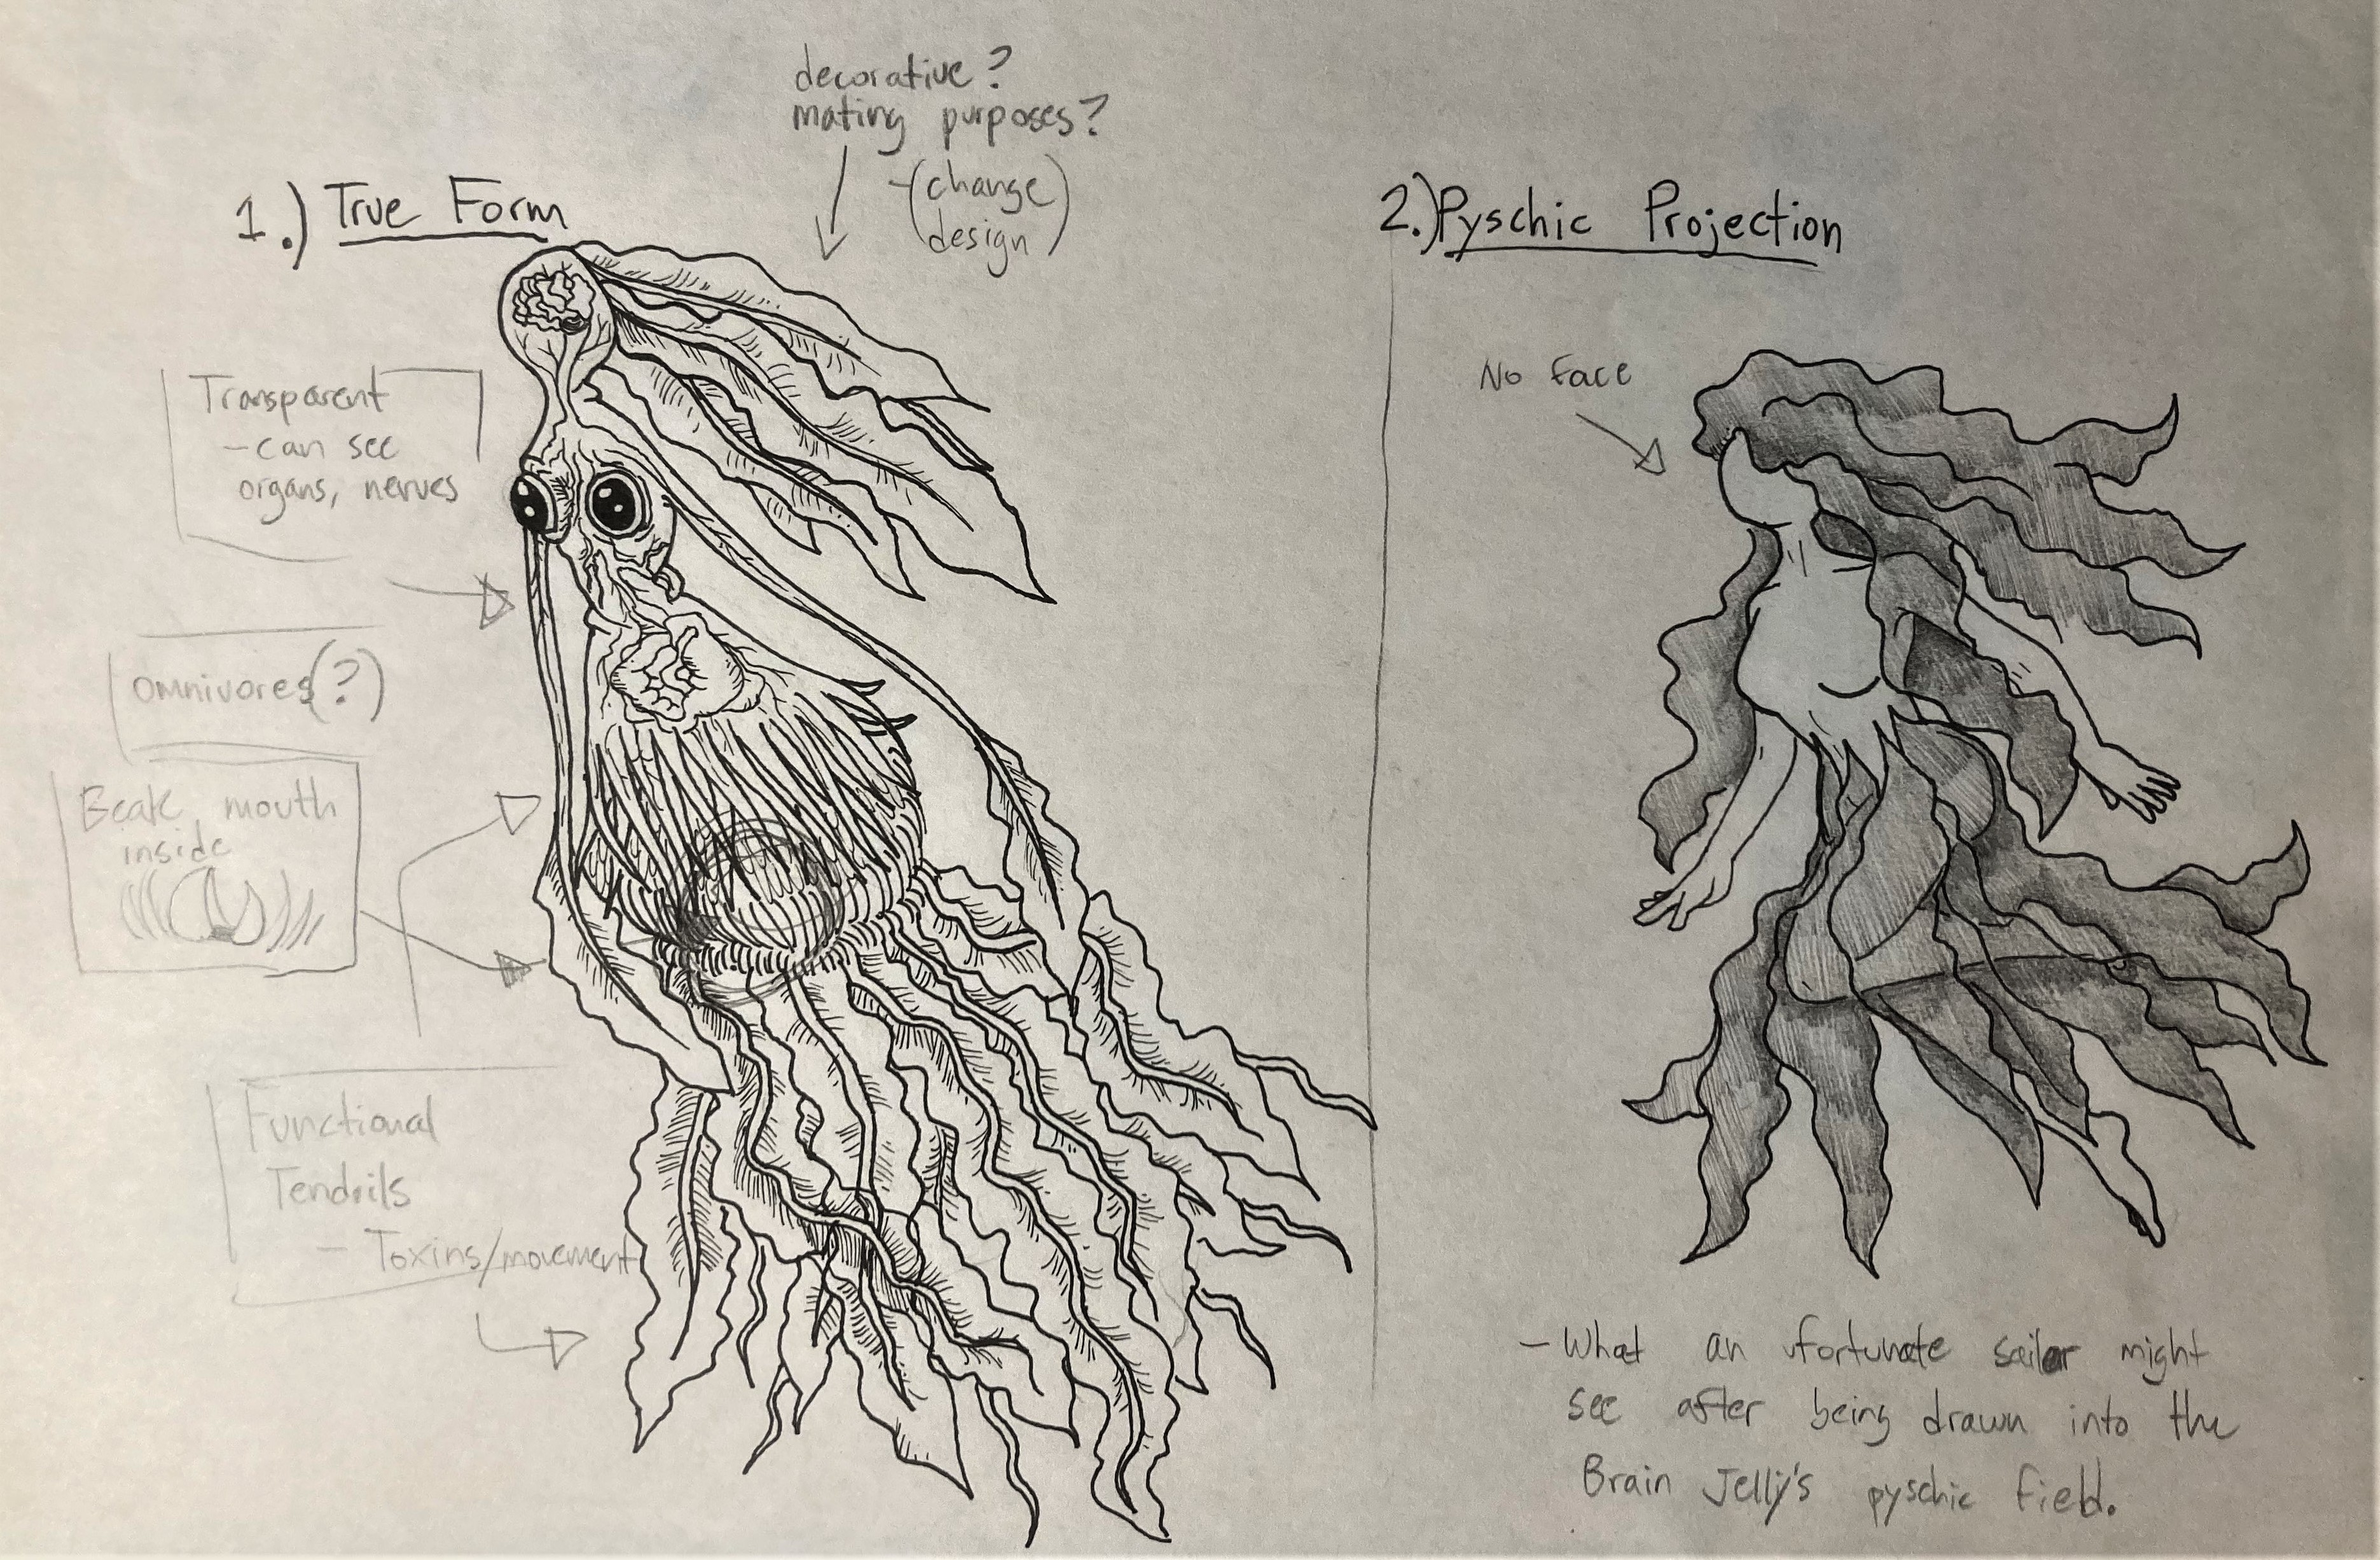 decorative?
mating purposes?
-(change
design)
1.) True Form
Transparent
-can see
organs, nerves
omnivores(?)
Beak, mouth
inside
Functional
Tendrils
- Toxins/movement
2.) Pyschic Projection
No Face
- What an ufortunate sailor might
see after being drawn into the
Brain Jelly's pyschic field.